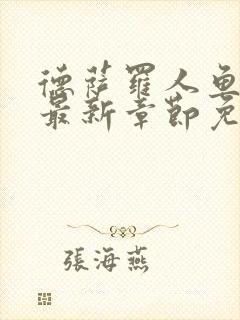 德薩羅人魚
最新章節免
張海燕